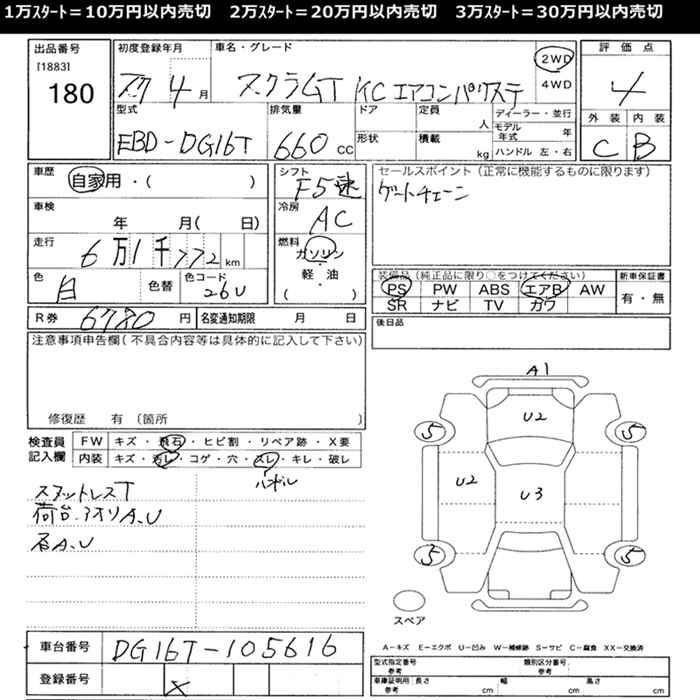 1万ｽﾀｰﾄ＝10万円以内売切　2万ｽﾀｰﾄ＝20万円以内売切　3万ｽﾀｰﾄ＝30万円以内売切
出品番号
[1883]
180
初度登録年月
4 月
車名・グレード
スクラムT KCエアコンパワステ
2WD
4WD
評価点
4
外装 内装
C B
型式
EBD-DG16T
排気量
660 CC
ドア
形状
定員 人
積載 kg
ディーラー・並行
モデル年式 年
ハンドル 左・右
車歴
自家用・( )
車検
年 月( 日)
走行
6万1千772 km
色
白
色替
色コード
26U
シフト
F5速
冷房
AC
燃料
ガソリン
・
軽・油
( )
セールスポイント（正常に機能するものに限ります）
ゲートチェーン
装備品（純正品に限り○をつけてください）
PS PW ABS エアB AW
SR ナビ TV カワ
新車保証書
有・無
R券 6780 円
名変通知期限 月 日
後日品
注意事項申告欄（不具合内容等は具体的に記入して下さい）
修復歴 有（箇所 ）
検査員
記入欄
FW キズ・飛石・ヒビ割・リペア跡・X要
内装 キズ・汚レ・コゲ・穴・スレ・キレ・破レ
ハンドル
スタットレスT
荷台.アオリA.U
A.U
A1
U2
5 5
U2 U3
5 5
スペア
A－キズ E－エクボ U－凹み W－補修跡 S－サビ C－腐食 XX－交換済
車台番号 DG16T-105616
登録番号 X
型式指定番号
参考
類別区分番号
参考
車庫証明用
参考
長さ cm 幅 cm 高さ cm